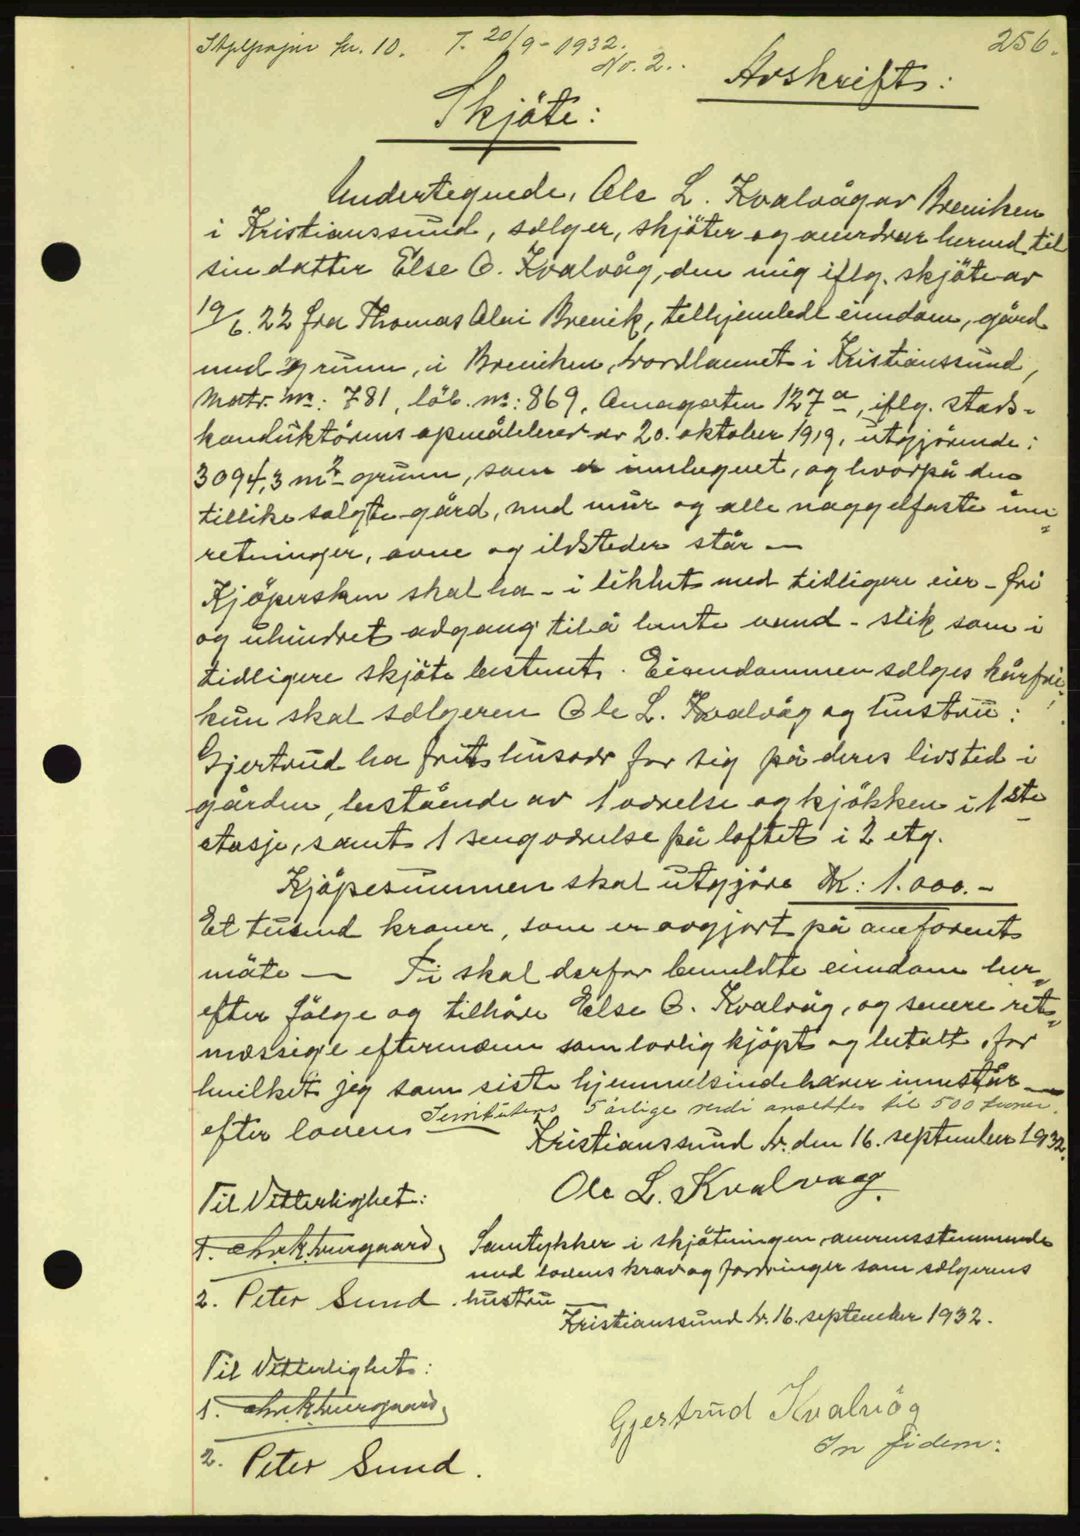 Stplpapir kr. 10. T. 20/9-1932. 256.
No. 2.
Avskrift:
Skjöte:
Undertegnede, Ole L. Kvalvåg av Breviken
i Kristianssund, sælger, skjöter og averdrar herved til
sin datter Else O. Kvalvåg, den mig iflg. skjöte av
19/6. 22 fra Thomas Brevik, tilhjemlede eiendom, gård
med grunn, i Breviken, Nordlannet i Kristianssund,
Matr. nr: 781, löb. nr: 869, 127a, iflg. stads-
konduktörens opmåling av 20. oktober 1919, utgjörende:
3094,3 m2 grunn, som er innhegnet, og hvorpå den
tillike solgte gård, med mur og alle naggelfaste inn-
retninger, ovne og ildsteder står —
Kjöpersken skal ha - i likhet med tidligere eier - fri
og uhindret adgang til å hente vand - slik som i
tidligere skjöte bestemt. Eiendommen sælges kårfri,
kun skal sælgeren Ole L. Kvalvåg og hustru:
Gjertrud ha frit husvær for sig på deres livstid i
gården, bestående av 1 værelse og kjökken i 1ste
etasje, samt 1 sengværelse på loftet i 2 etg.
Kjöpesummen skal utgjöre Kr: 1.000.-
Et tusend kroner, som er avgjort på omforent
måte — Ti skal derfor bemeldte eiendom her-
efter fölge og tilhöre Else O. Kvalvåg, og senere ret-
mæssige eftermænn som lovlig kjöpt og betalt, for
hvilket jeg som siste hjemmelsindehaver innestår —
efter loven. Servitutens 5 årlige verdi ansettes til 500 kroner.
Kristianssund N. den 16. september 1932.
Til Vitterlighet: Ole L. Kvalvaag.
1. Samtykker i skjötningen, overensstemmende
med lovens krav og fordringer som sælgerens
2. Peter Sund. hustru —
Kristianssund N. 16. september 1932.
Til Vitterlighet:
1.
Gjertrud Kvalvåg
In fidem:
2. Peter Sund.